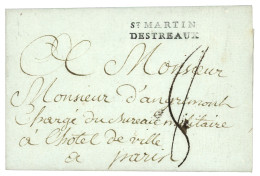 ST MARTIN
DESTREAUX
A Monsieur
Monsieur d'angremont
Chargé du bureau militaire
à l'hotel de ville
a paris